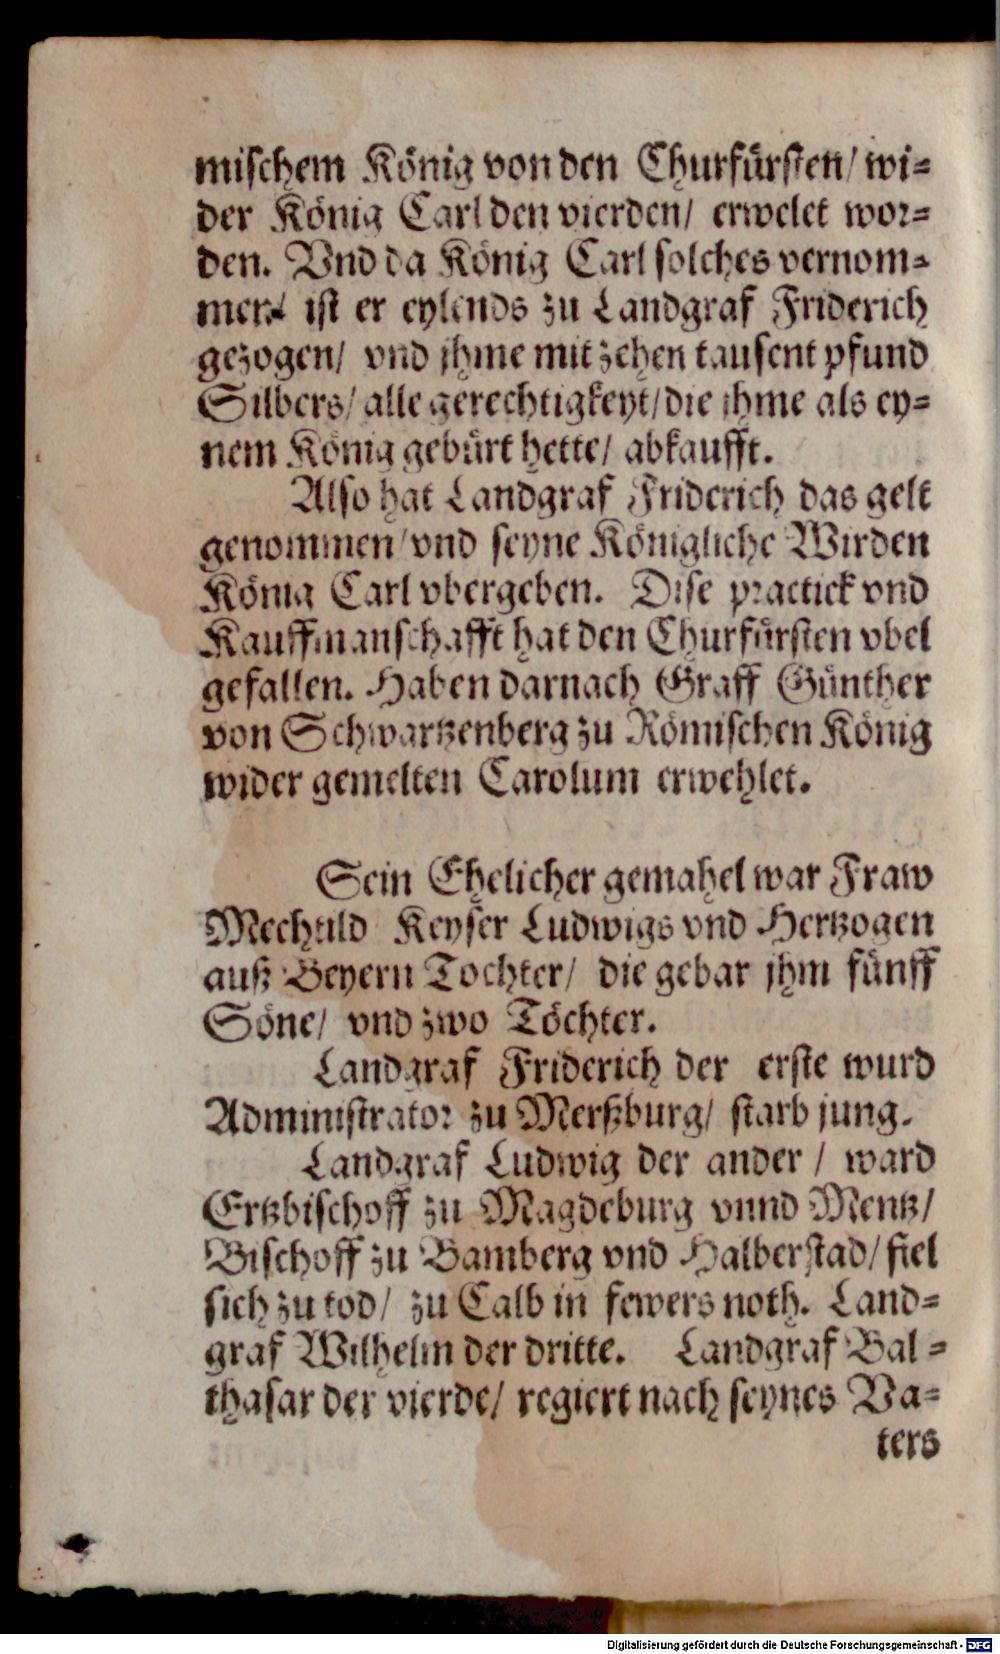 mischem König von den Churfürsten/ wi-
der König Carl den vierden/ erwelet wor-
den. Vnd da König Carl solches vernom-
men/ ist er eylends zu Landgraf Friderich
gezogen/ vnd jhme mit zehen tausent pfund
Silbers/ alle gerechtigkeyt/ die jhme als ey-
nem König gebürt hette/ abkaufft.
Also hat Landgraf Friderich das gelt
genommen/ vnd seyne Königliche Wirden
König Carl vbergeben. Dise practick vnd
Kauffmanschafft hat den Churfürsten vbel
gefallen. Haben darnach Graff Günther
von Schwartzenberg zu Römischen König
wider gemelten Carolum erwehlet.
Sein Ehelicher gemahel war Fraw
Mechtild Keyser Ludwigs vnd Hertzogen
auß Beyern Tochter/ die gebar jhm fünff
Söne/ vnd zwo Töchter.
Landgraf Friderich der erste wurd
Administrator zu Merßburg/ starb jung.
Landgraf Ludwig der ander / ward
Ertzbischoff zu Magdeburg vnnd Mentz/
Bischoff zu Bamberg vnd Halberstad/ fiel
sich zu tod/ zu Calb in fewers noth. Land-
graf Wilhelm der dritte. Landgraf Bal-
thasar der vierde/ regiert nach seynes Va-
ters
Digitalisierung gefördert durch die Deutsche Forschungsgemeinschaft - DFG